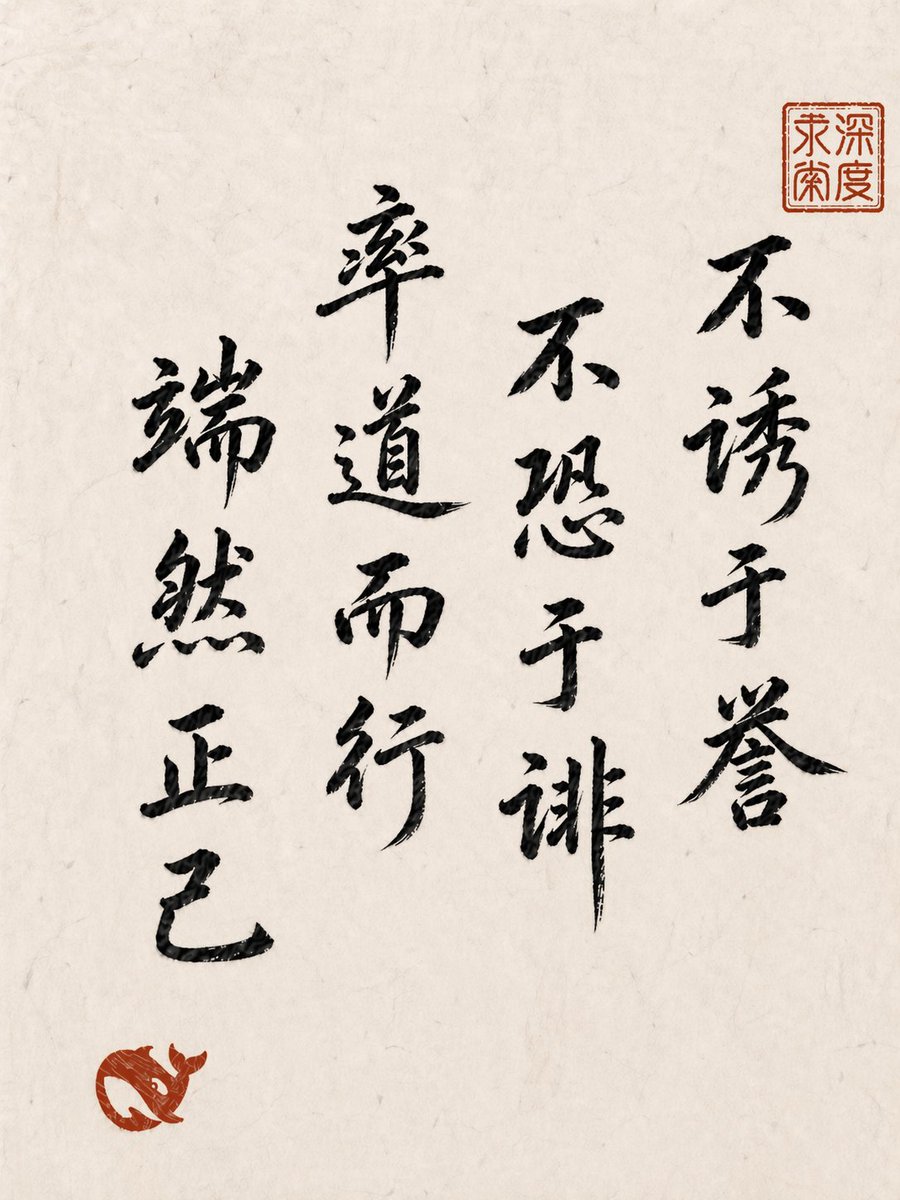 不诱于誉
不恐于诽
率道而行
端然正己
深度
求索